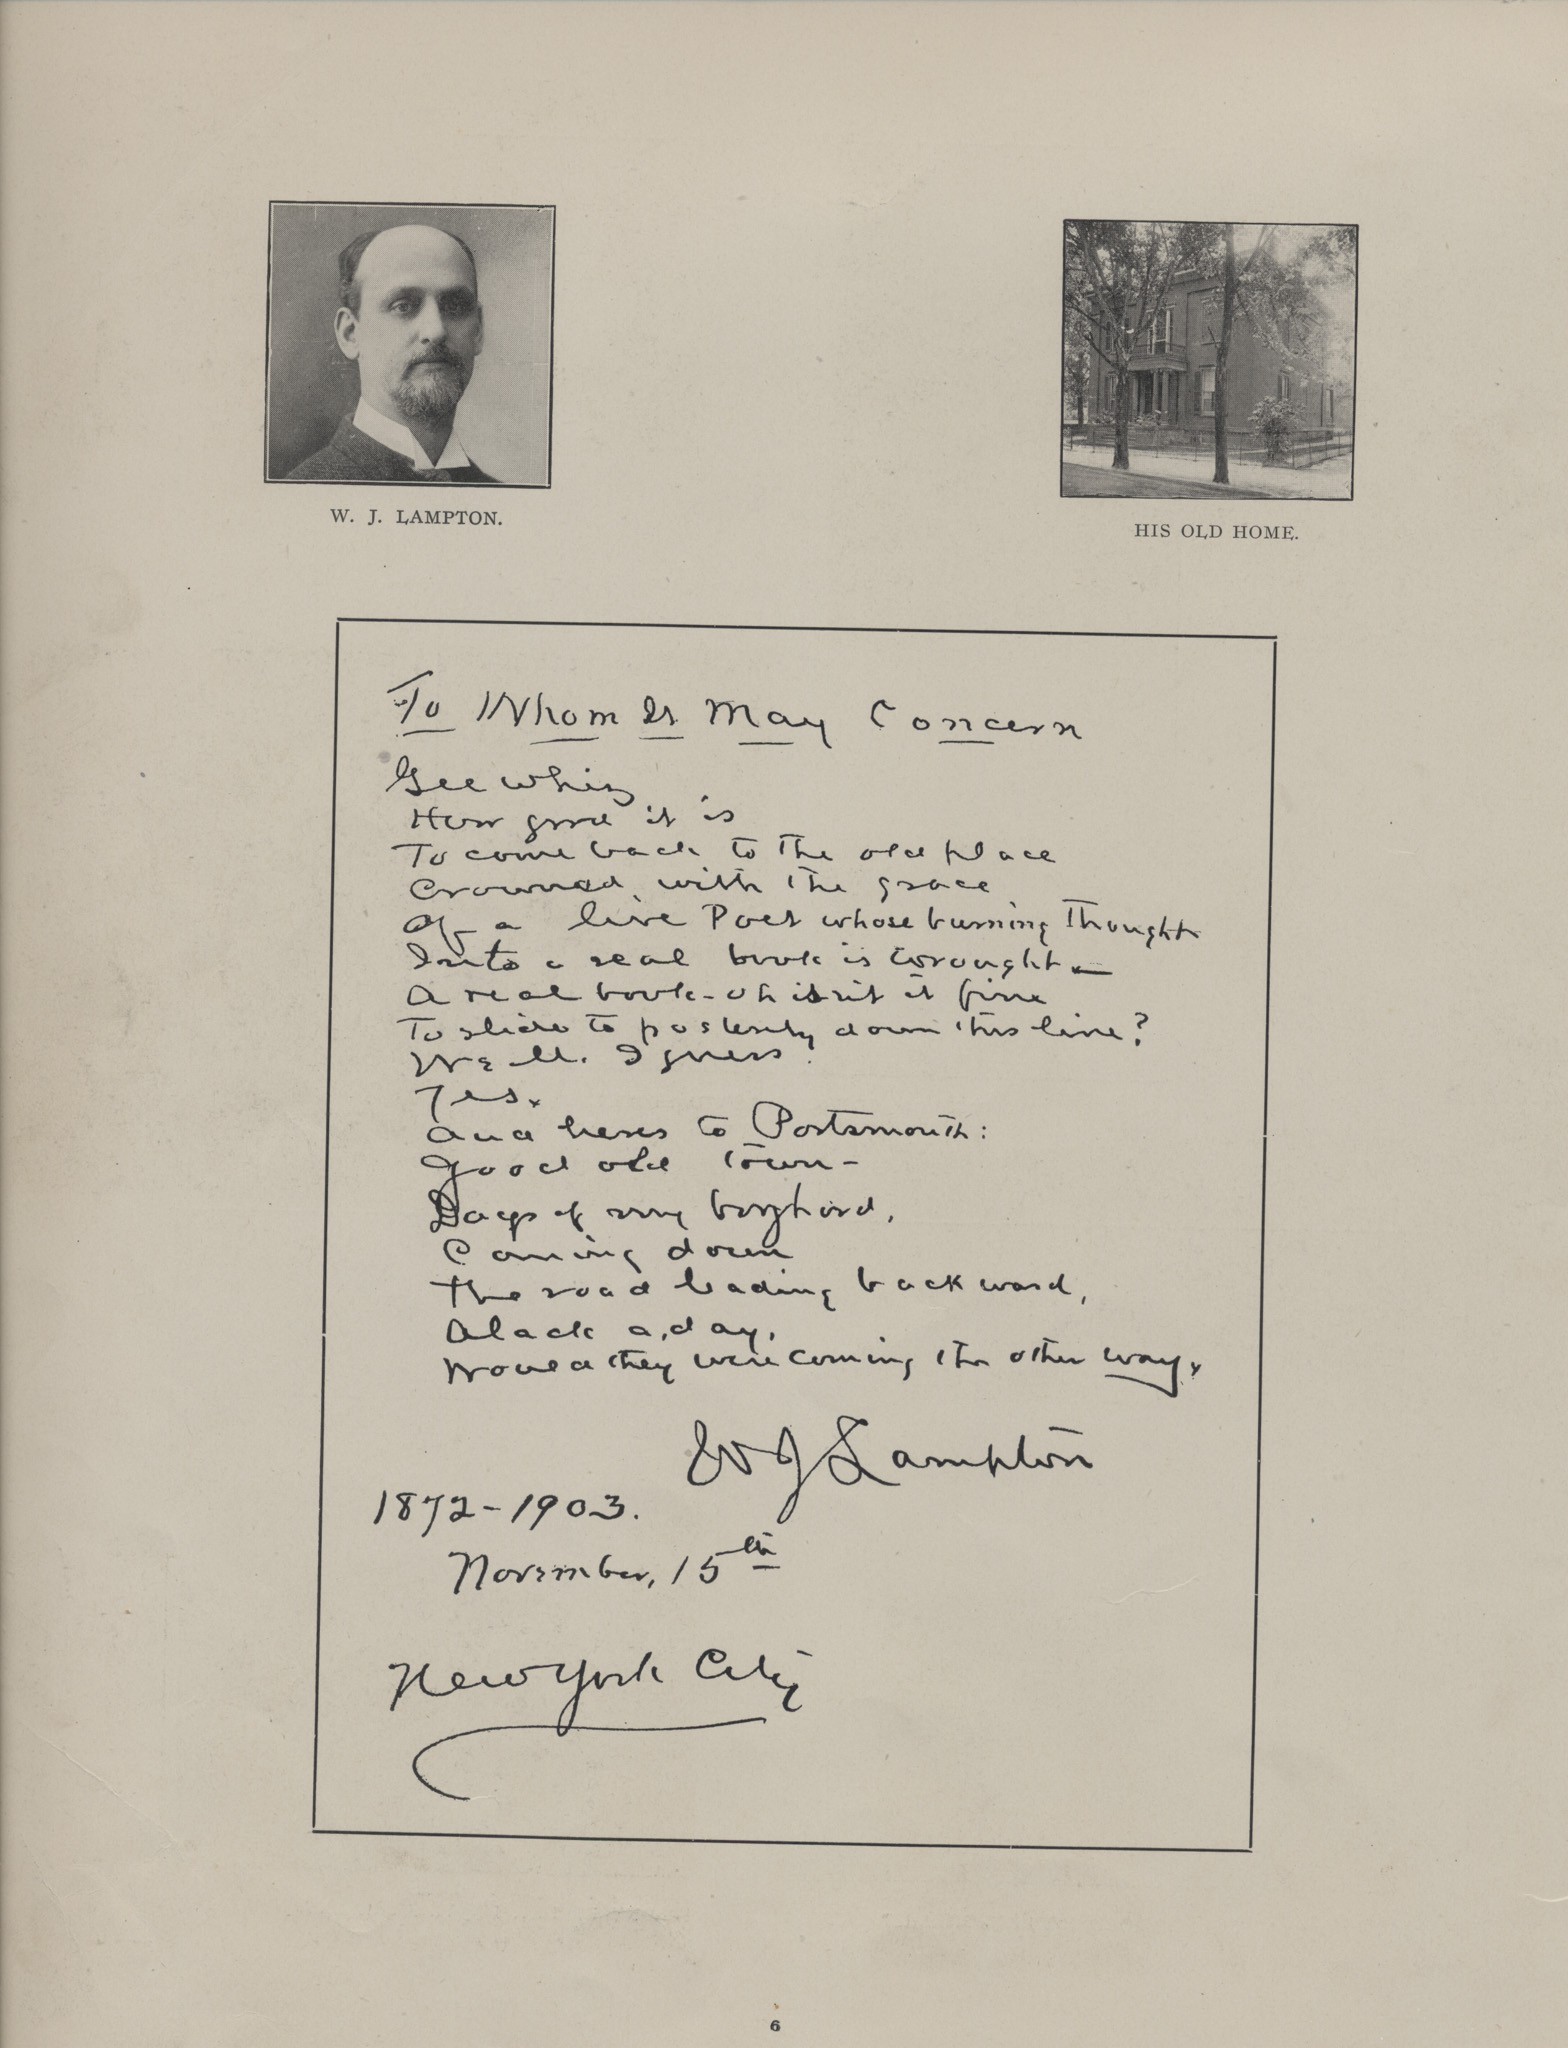 W. J. LAMPTON.
HIS OLD HOME.
To Whom It May Concern
Gee whiz
How good it is
To come back to the old place
Crowned with the grace
Of a live Poet whose burning thought
Into a real book is wrought—
A real book - oh isn't it fine
To slide to posterity down this line?
Well. I guess.
Yes.
And heres to Portsmouth:
Good old town—
Days of my boyhood,
Coming down
The road leading backward,
Alack a,day,
Would they were coming the other way.
W J Lampton
1872-1903.
November, 15th
New York City
6